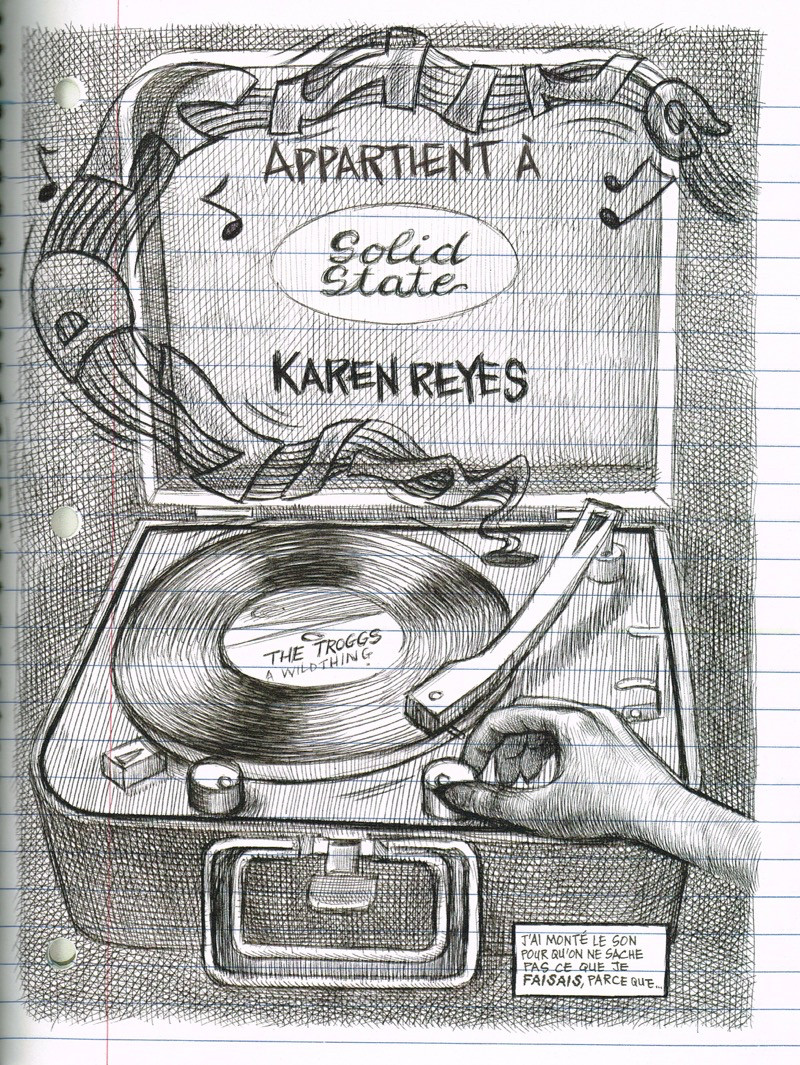 APPARTIENT À
Solid
State
KAREN REYES
THE TROGGS
A WILD THING
J'AI MONTÉ LE SON
POUR QU'ON NE SACHE
PAS CE QUE JE
FAISAIS, PARCE QUE...